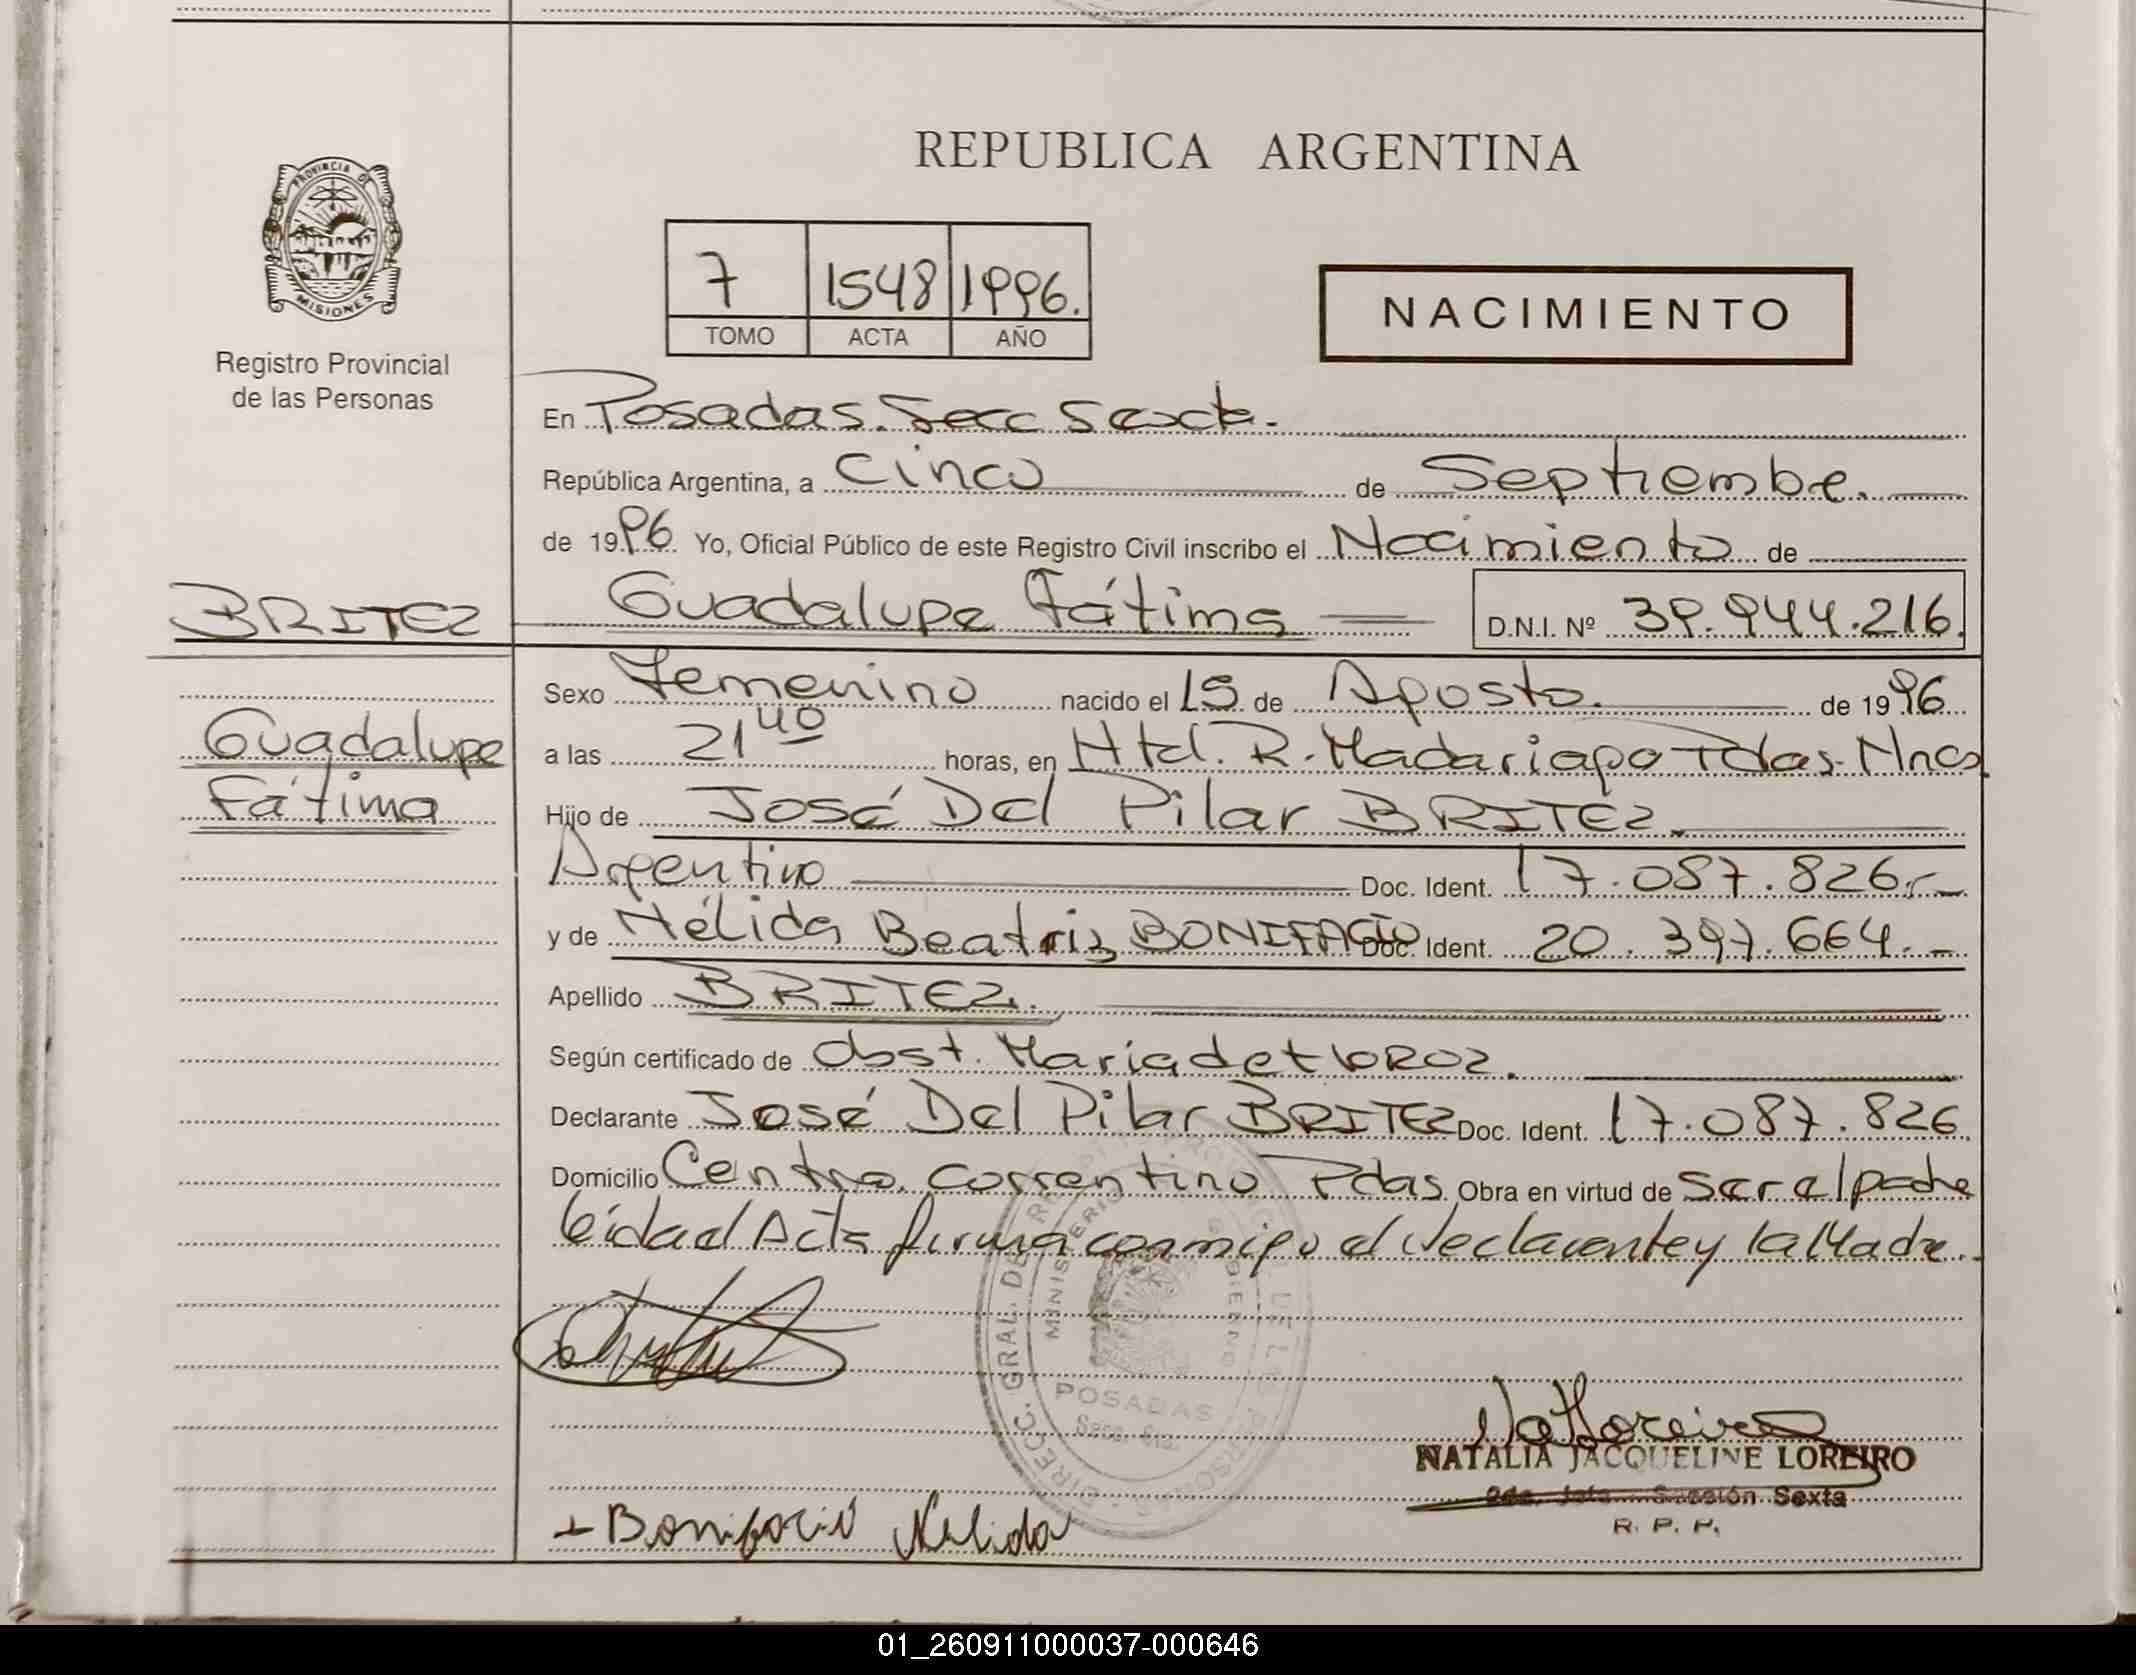 REPUBLICA ARGENTINA
PROVINCIA DE
MISIONES
Registro Provincial
de las Personas
7 1548 1996.
TOMO ACTA AÑO
NACIMIENTO
En Posadas. Secc Sexta.
República Argentina, a cinco de Septiembre.
de 1996 Yo, Oficial Público de este Registro Civil inscribo el Nacimiento de
BRITEZ
Guadalupe Fátima D.N.I. Nº 39.944.216.
Sexo Femenino nacido el 15 de Agosto. de 1996
Guadalupe
Fátima
a las 21 40 horas, en Htal. R. Madariaga Pdas. Mnes
Hijo de José Del Pilar BRITEZ.
Argentino Doc. Ident. 17.087.826.-
y de Nélida Beatriz BONIFACIO Doc. Ident. 20.397.664.-
Apellido BRITEZ.
Según certificado de Obst. María
Declarante José Del Pilar BRITEZ Doc. Ident. 17.087.826
Domicilio Centro Correntino Pdas. Obra en virtud de ser el padre
leida el Acta firma conmigo el declarante y la Madre.
DIRECC. GRAL. DE
MINISTERIO GOBIERNO
DE LAS PERSONAS
POSADAS
Secc. 6ta.
NATALIA JACQUELINE LOREIRO
Sección Sexta
R. P. P.
+ Bonifacio Nelida
01_260911000037-000646